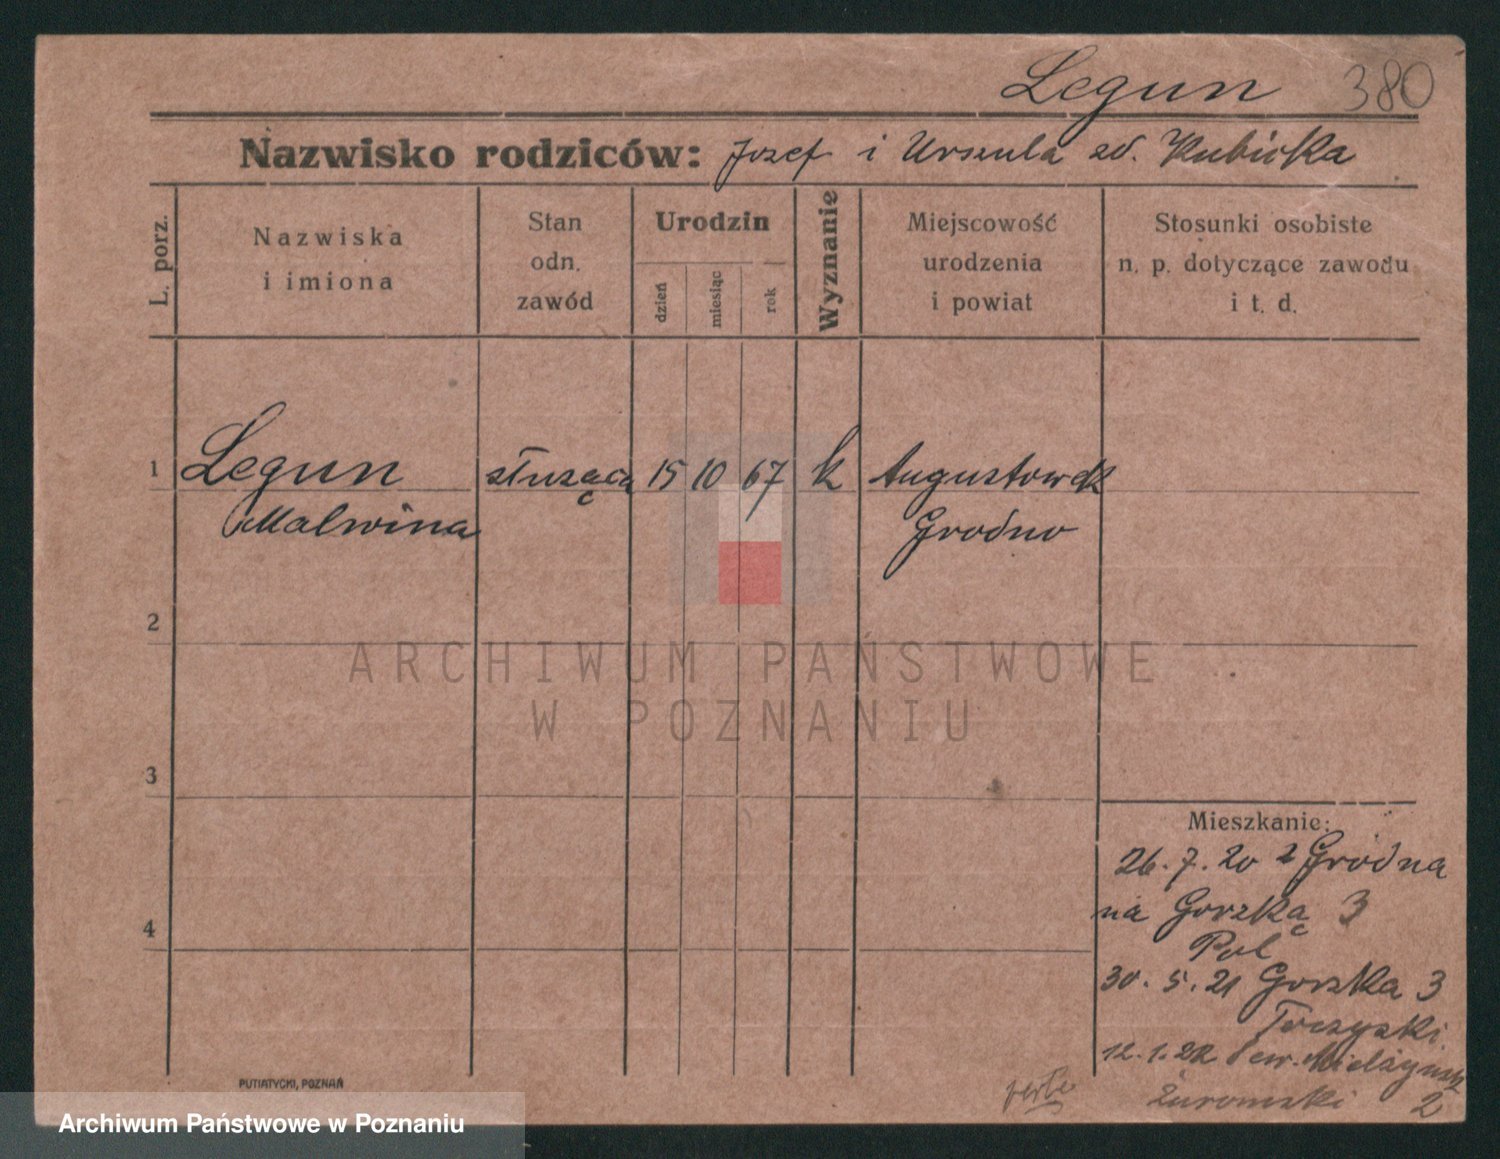 Legun 380
Nazwisko rodziców: Jozef i Urszula zd. Kubicka
L. porz.
Nazwiska
i imiona
Stan
odn.
zawód
Urodzin
dzień
miesiąc
rok
Wyznanie
Miejscowość
urodzenia
i powiat
Stosunki osobiste
n. p. dotyczące zawodu
i t. d.
1 Legun służąca 15 10 67 k
Malwina Grodno
2
ARCHIWUM PAŃSTWOWE
W POZNANIU
3
Mieszkanie:
26. 7. 20 z Grodna
na Gorzką 3
Pol
4
30. 5. 21 Gorzka 3
12. 1. 22
Żuromski 2
PUTIATYCKI, POZNAŃ
Archiwum Państwowe w Poznaniu